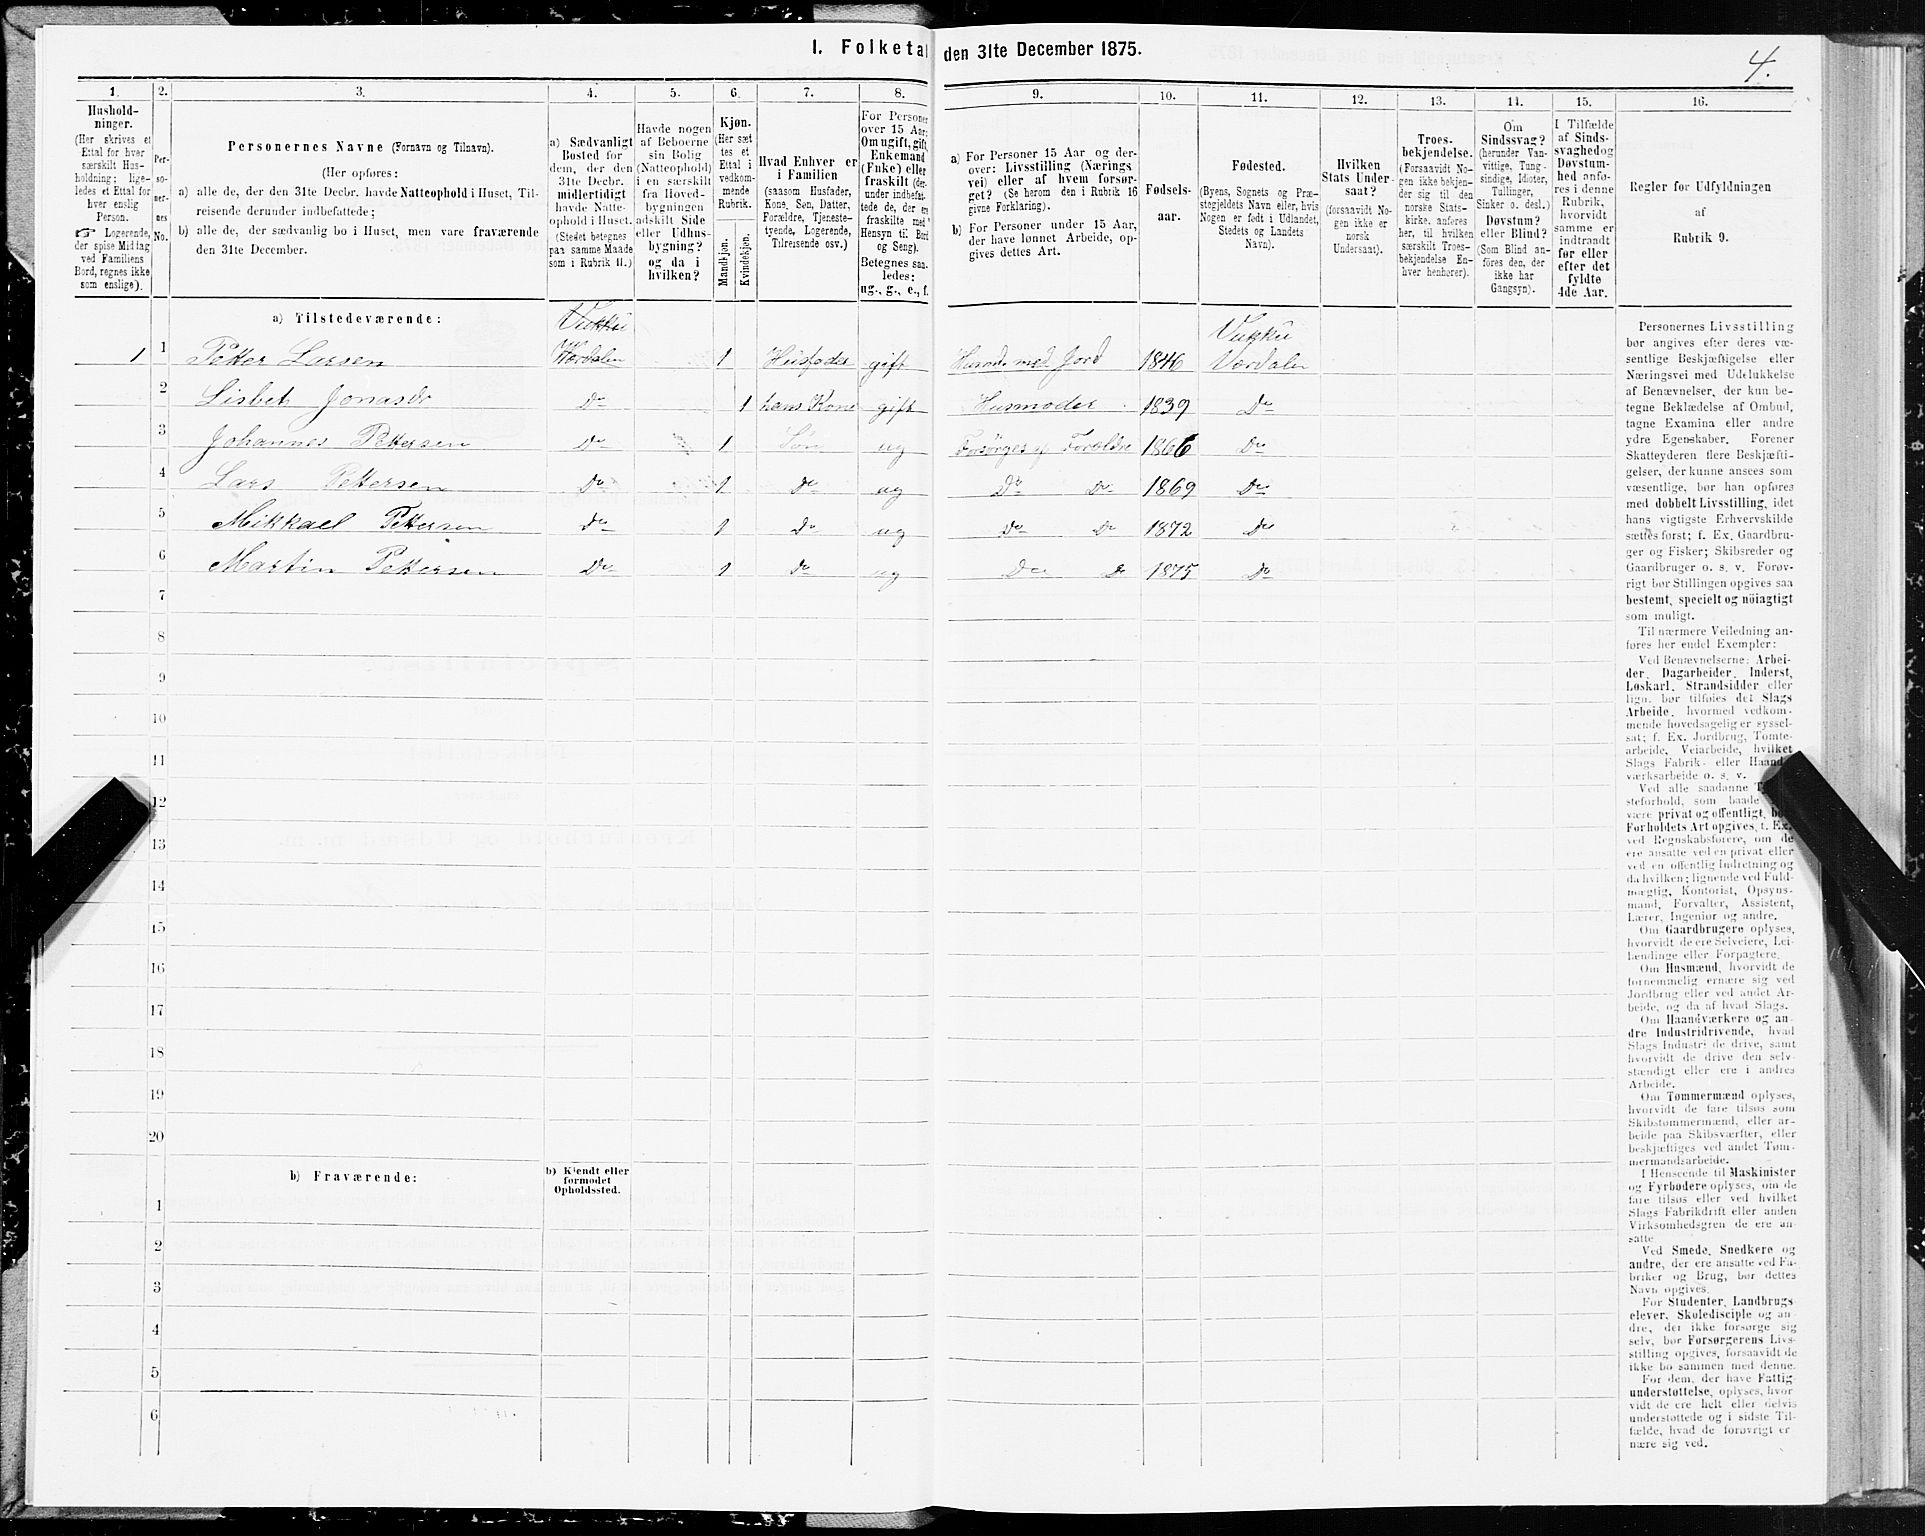 1. Folketal den 31te December 1875.
4.
1. 2. 3. 4. 5. 6. 7. 8. 9. 10. 11. 12. 13. 14. 15. 16.
Hushold-
ninger.
(Her skrives et
Ettal for hver
særskilt Hus-
holdning; lige-
ledes et Ettal for
hver enslig
Person.
☞ Logerende,
der spise Middag
ved Familiens
Bord, regnes ikke
som enslige).
Per-
so-
ner-
nes
No.
Personernes Navne (Fornavn og Tilnavn).
(Her opføres:
a) alle de, der den 31te Decbr. havde Natteophold i Huset, Til-
reisende derunder indbefattede;
b) alle de, der sædvanlig bo i Huset, men vare fraværende
den 31te December.
a) Sædvanligt
Bosted for
dem, der den
31te Decbr.
midlertidigt
havde Natte-
ophold i Huset.
(Stedet betegnes
paa samme Maade
som i Rubrik 11.)
Havde nogen
af Beboerne
sin Bolig
(Natteophold)
i en særskilt
fra Hoved-
bygningen
adskilt Side
eller Udhus-
bygning?
og da i
hvilken?
Kjøn.
(Her sæt-
tes et
Ettal i
vedkom-
mende
Rubrik.
Mandkjøn.
Kvindekjøn.
Hvad Enhver er
i Familien
(saasom Husfader,
Kone, Søn, Datter,
Forældre, Tjeneste-
tyende, Logerende,
Tilreisende osv.)
For Personer
over 15 Aar:
Om ugift, gift,
Enkemand
(Enke) eller
fraskilt (der-
under indbefat-
tede de, der ere
fraskilte med
Hensyn til Bord
og Seng).
Betegnes saa-
ledes:
ug., g., e., f.
a) For Personer 15 Aar og der-
over: Livsstilling (Nærings
vei) eller af hvem forsør-
get? (Se herom den i Rubrik 16
givne Forklaring).
b) For Personer under 15 Aar,
der have lønnet Arbeide, op-
gives dettes Art.
Fødsels-
aar.
Fødested.
(Byens, Sognets og Præ-
stegjeldets Navn eller, hvis
Nogen er født i Udlandet,
Stedets og Landets
Navn).
Hvilken
Stats Under-
saat?
(forsaavidt No-
gen ikke er
norsk
Undersaat).
Troes-
bekjendelse.
(Forsaavidt No-
gen ikke bekjen-
der sig til den
norske Stats-
kirke, anføres
her, til hvilken
særskilt Troes-
bekjendelse En-
hver henhører).
Om
Sindssvag?
(herunder Van-
vittige, Tung-
sindige, Idioter,
Tullinger,
Sinker o. desl.)
Døvstum?
eller Blind?
(Som Blind an-
føres den, der
ikke har
Gangsyn).
I Tilfælde
af Sinds-
svaghed og
Døvstum-
hed anfø-
res i denne
Rubrik,
hvorvidt
samme er
indtraadt
før eller
efter det
fyldte
4de Aar.
Regler for Udfyldningen
af
Rubrik 9.
a) Tilstedeværende:
Vukku Vukku
1 1 Petter Larsen Værdalen 1 Husfader gift Husmd. med Jord 1846 Værdalen
2 Lisbet Jonasdr Do 1 hans Kone gift Husmoder 1839 Do
3 Johannes Pettersen Do 1 Søn ug Forsørges af Forældre 1866 Do
4 Lars Pettersen Do 1 Do ug Do Do 1869 Do
5 Mikkael Pettersen Do 1 Do ug Do Do 1872 Do
6 Martin Pettersen Do 1 Do ug Do Do 1875 Do
7
8
9
10
11
12
13
14
15
16
17
18
19
20
b) Fraværende: b) Kjendt eller
formodet
Opholdssted.
1
2
3
4
5
6
Personernes Livsstilling
bør angives efter deres væ-
sentlige Beskjæftigelse eller
Næringsvei med Udelukkelse
af Benævnelser, der kun be-
tegne Beklædelse af Ombud,
tagne Examina eller andre
ydre Egenskaber. Forener
Skatteyderen flere Beskjæfti-
gelser, der kunne ansees som
væsentlige, bør han opføres
med dobbelt Livsstilling, idet
hans vigtigste Erhvervskilde
sættes først; f. Ex. Gaardbru-
ger og Fisker; Skibsreder og
Gaardbruger o. s. v. Forøv-
rigt bør Stillingen opgives saa
bestemt, specielt og nöiagtigt
som muligt.
Til nærmere Veiledning an-
føres her endel Exempler:
Ved Benævnelserne: Arbei-
der, Dagarbeider, Inderst,
Løskarl, Strandsidder eller
lign. bør tilføies det Slags
Arbeide, hvormed vedkom-
mende hovedsagelig er syssel-
sat; f. Ex. Jordbrug, Tomte-
arbeide, Veiarbeide, hvilket
Slags Fabrik- eller Haand-
værksarbeide o. s. v.
Ved alle saadanne
steforhold, som baade
være privat og offentligt,
Forholdets Art opgives, f. Ex.
ved Regnskabsførere, om de
ere ansatte ved en privat eller
ved en offentlig Indretning og
da hvilken; lignende ved Fuld-
mægtig, Kontorist, Opsyns-
mand, Forvalter, Assistent,
Lærer, Ingeniør og andre.
Om Gaardbrugere oplyses,
hvorvidt de ere Selveiere, Lei-
lændinge eller Forpagtere.
Om Husmænd, hvorvidt de
fornemmelig ernære sig ved
Jordbrug eller ved andet Ar-
beide, og da af hvad Slags.
Om Haandværkere og an-
dre Industridrivende, hvad
Slags Industri de drive, samt
hvorvidt de drive den selv-
stændigt eller ere i andres
Arbeide.
Om Tømmermænd oplyses,
hvorvidt de fare tilsøs som
Skibstømmermænd, eller ar-
beide paa Skibsværfter, eller
beskjæftiges ved andet Tøm-
mermandsarbeide.
I Henseende til Maskinister
og Fyrbødere oplyses, om de
fare tilsøs eller ved hvilket
Slags Fabrikdrift eller anden
Virksomhedsgren de ere an-
satte
Ved Smede, Snedkere og
andre, der ere ansatte ved Fa-
briker og Brug, bør dettes
Navn opgives.
For Studenter, Landbrugs-
elever, Skoledisciple og an-
dre, der ikke forsørge sig
selv, bør Forsørgerens Livs-
stilling opgives, forsaavidt de
ikke bo sammen med denne.
For dem, der have Fattig-
understøttelse, oplyses, hvor-
vidt de ere helt eller delvis
understøttede og i sidste Til-
fælde, hvad de forøvrigt er-
nære sig ved.